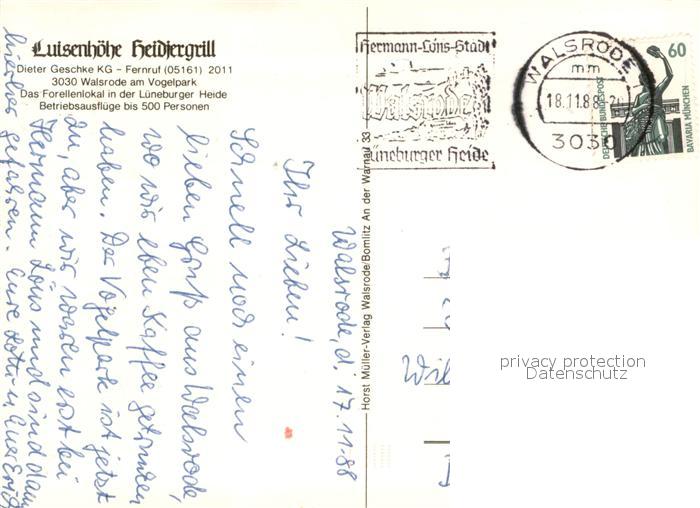 Luisenhöhe Heidjergrill
Dieter Geschke KG – Fernruf (05161) 2011
3030 Walsrode am Vogelpark
Das Forellenlokal in der Lüneburger Heide
Betriebsausflüge bis 500 Personen
Walsrode, d. 17.11.88
Ihr Lieben!
Schnell noch einen
lieben Gruß aus Walsrode,
wo wir eben Kaffee getrunken
haben. Der Vogelpark ist jetzt
zu, aber wir waren erst bei
Hermann Löns und sind dann
hierher gefahren. Eure Lotti u. Eure
Horst Müller-Verlag Walsrode/Bomlitz An der Warnau 33
Hermann-Löns-Stadt
Walsrode
Lüneburger Heide
WALSRODE
mm
18.11.88-20
3030
60
DEUTSCHE BUNDESPOST
BAVARIA MÜNCHEN
privacy protection
Datenschutz